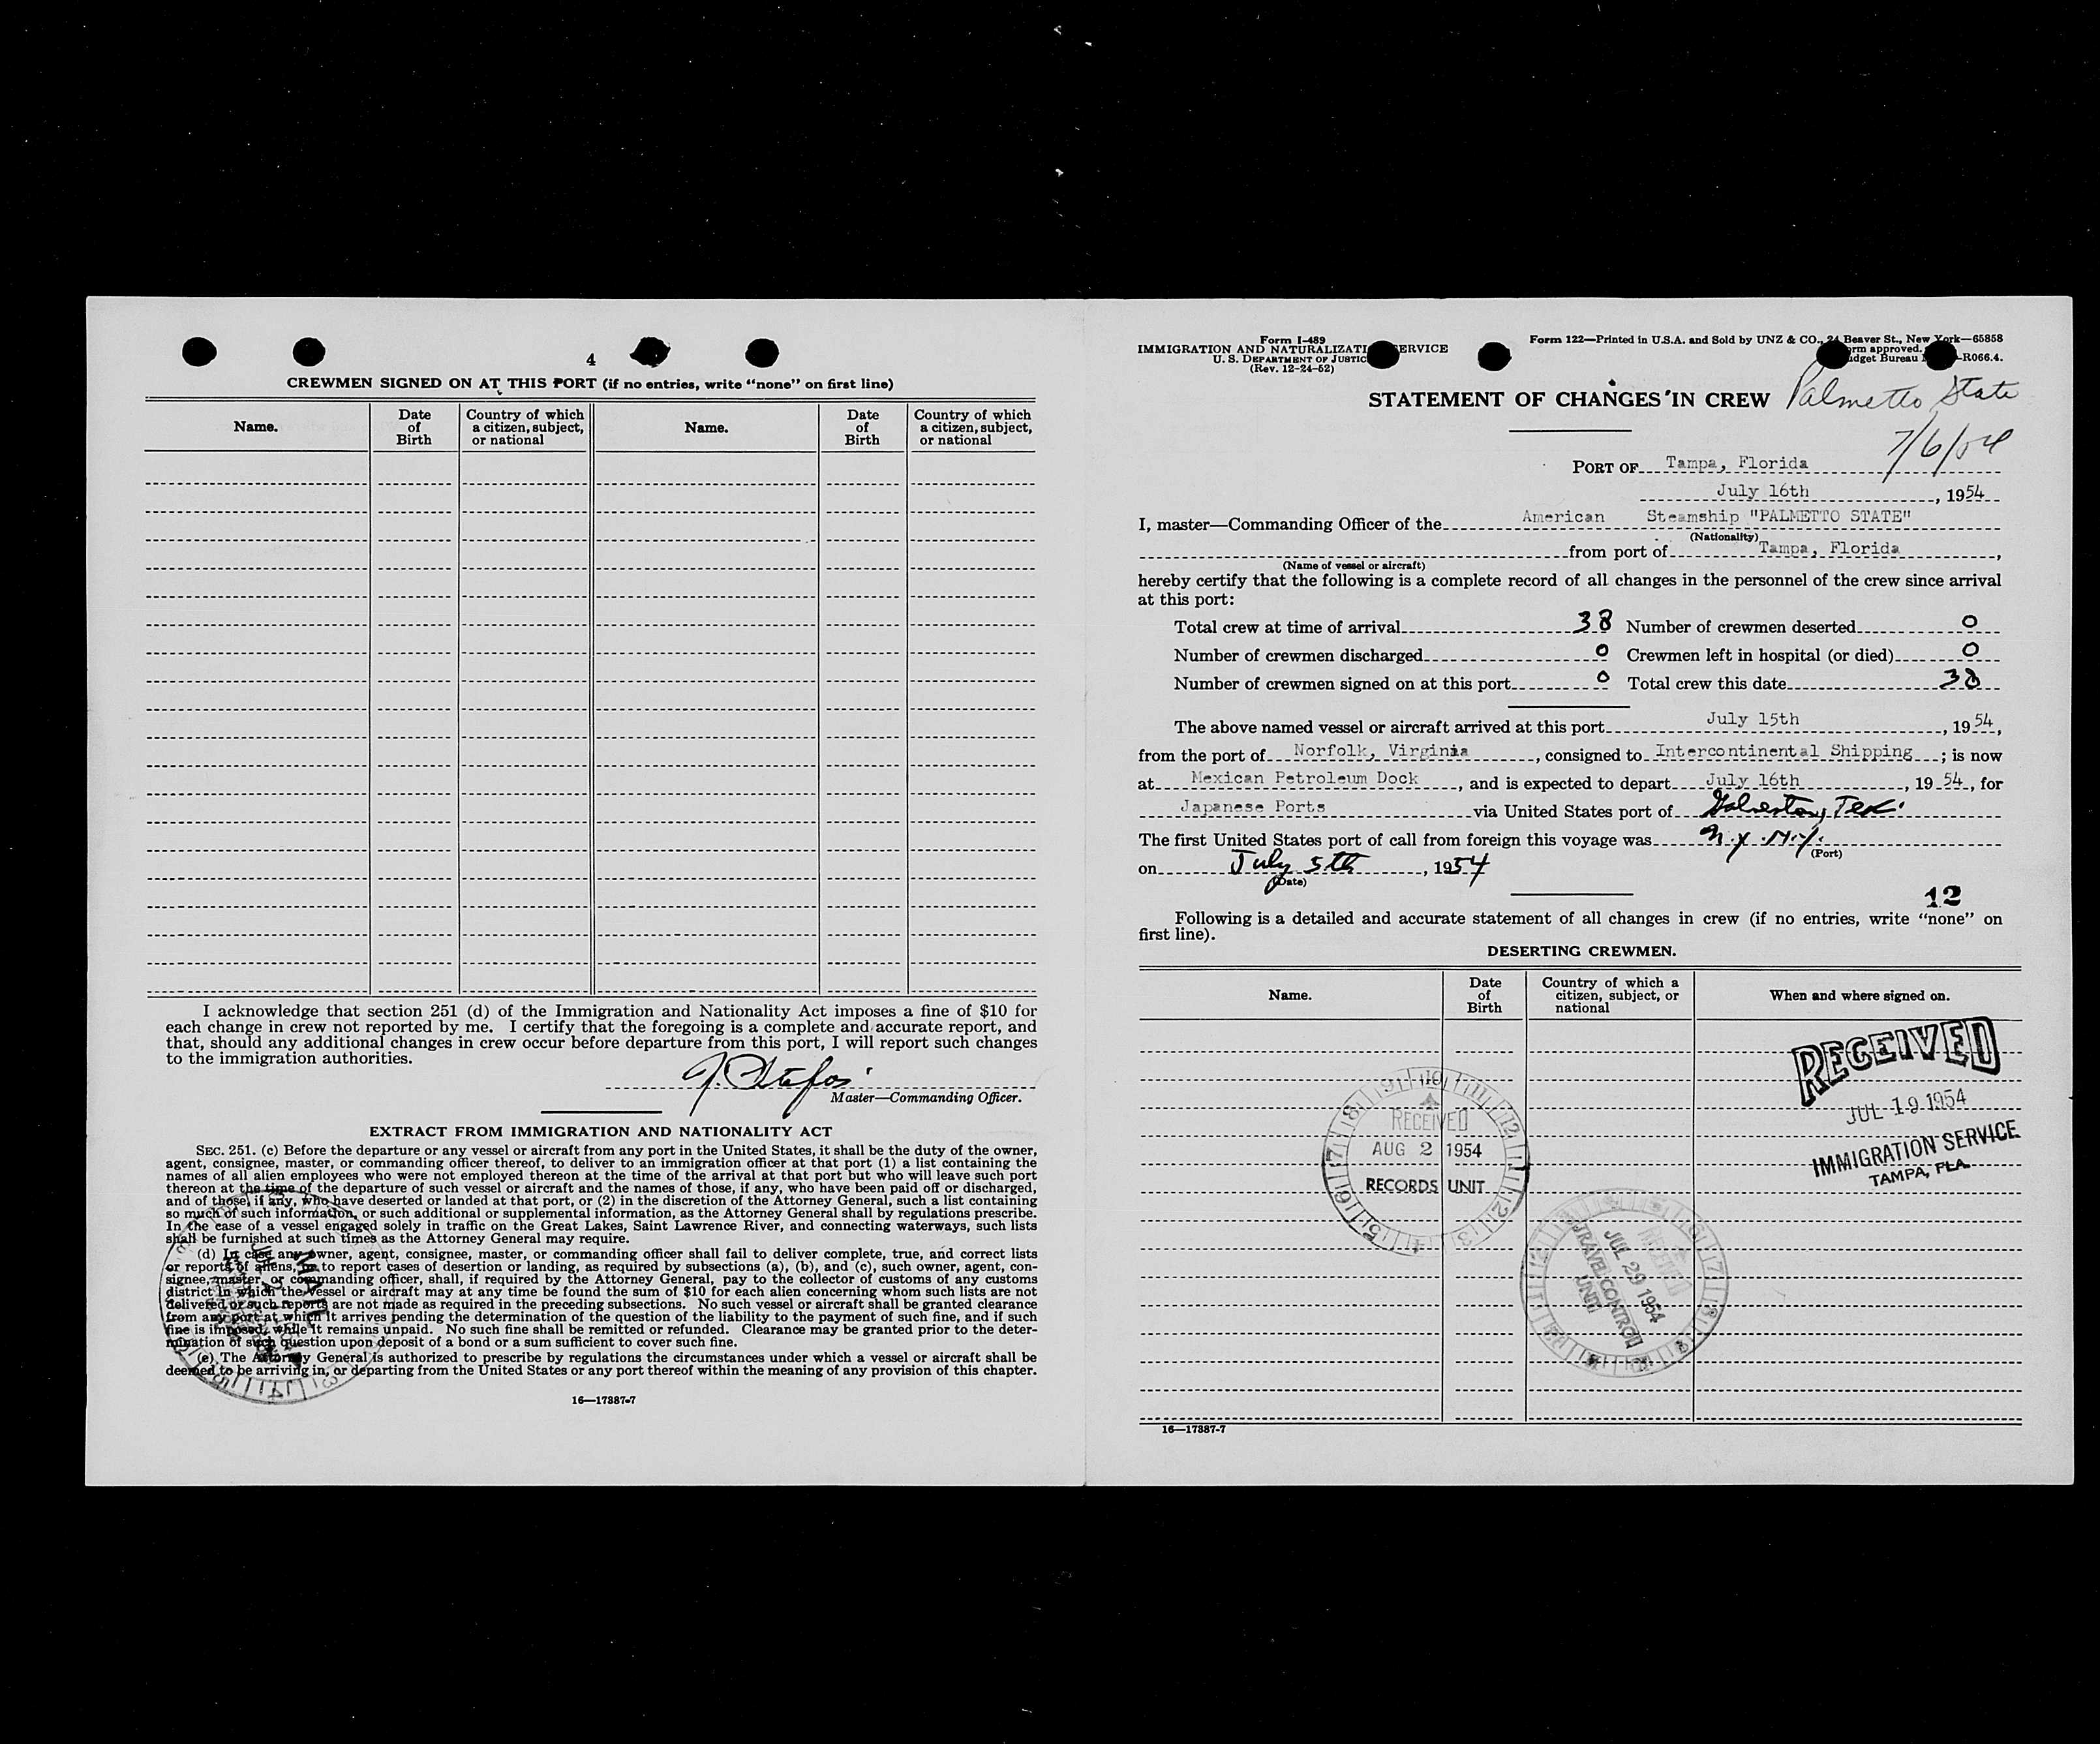 4
CREWMEN SIGNED ON AT THIS PORT (if no entries, write “none” on first line)
Name. Date of Birth Country of which a citizen, subject, or national Name. Date of Birth Country of which a citizen, subject, or national
I acknowledge that section 251 (d) of the Immigration and Nationality Act imposes a fine of $10 for
each change in crew not reported by me. I certify that the foregoing is a complete and accurate report, and
that, should any additional changes in crew occur before departure from this port, I will report such changes
to the immigration authorities.
Master—Commanding Officer.
EXTRACT FROM IMMIGRATION AND NATIONALITY ACT
SEC. 251. (c) Before the departure or any vessel or aircraft from any port in the United States, it shall be the duty of the owner,
agent, consignee, master, or commanding officer thereof, to deliver to an immigration officer at that port (1) a list containing the
names of all alien employees who were not employed thereon at the time of the arrival at that port but who will leave such port
thereon at the time of the departure of such vessel or aircraft and the names of those, if any, who have been paid off or discharged,
and of those, if any, who have deserted or landed at that port, or (2) in the discretion of the Attorney General, such a list containing
so much of such information, or such additional or supplemental information, as the Attorney General shall by regulations prescribe.
In the case of a vessel engaged solely in traffic on the Great Lakes, Saint Lawrence River, and connecting waterways, such lists
shall be furnished at such times as the Attorney General may require.
(d) In case any owner, agent, consignee, master, or commanding officer shall fail to deliver complete, true, and correct lists
or reports of aliens, or to report cases of desertion or landing, as required by subsections (a), (b), and (c), such owner, agent, con-
signee, master, or commanding officer, shall, if required by the Attorney General, pay to the collector of customs of any customs
district in which the vessel or aircraft may at any time be found the sum of $10 for each alien concerning whom such lists are not
delivered or such reports are not made as required in the preceding subsections. No such vessel or aircraft shall be granted clearance
from any port at which it arrives pending the determination of the question of the liability to the payment of such fine, and if such
fine is imposed, while it remains unpaid. No such fine shall be remitted or refunded. Clearance may be granted prior to the deter-
mination of such question upon deposit of a bond or a sum sufficient to cover such fine.
(e) The Attorney General is authorized to prescribe by regulations the circumstances under which a vessel or aircraft shall be
deemed to be arriving in, or departing from the United States or any port thereof within the meaning of any provision of this chapter.
MAIL
16—17887-7
Form I-489
IMMIGRATION AND NATURALIZATI ERVICE
U. S. DEPARTMENT OF JUSTIC
(Rev. 12-24-52)
Form 122—Printed in U.S.A. and Sold by UNZ & CO., 24 Beaver St., New York—65858
rm approved.
dget Bureau -R066.4.
STATEMENT OF CHANGES IN CREW Palmetto State
7/6/54
PORT OF Tampa, Florida
July 16th, 1954
I, master—Commanding Officer of the American Steamship "PALMETTO STATE"
(Nationality)
from port of Tampa, Florida,
(Name of vessel or aircraft)
hereby certify that the following is a complete record of all changes in the personnel of the crew since arrival
at this port:
Total crew at time of arrival 38 Number of crewmen deserted 0
Number of crewmen discharged 0 Crewmen left in hospital (or died) 0
Number of crewmen signed on at this port 0 Total crew this date 38
The above named vessel or aircraft arrived at this port July 15th, 1954,
from the port of Norfolk, Virginia, consigned to Intercontinental Shipping; is now
at Mexican Petroleum Dock, and is expected to depart July 16th, 1954, for
Japanese Ports via United States port of Galveston, Tex.
The first United States port of call from foreign this voyage was N.Y. N.Y.
(Port)
on July 5th, 1954
(Date)
12
Following is a detailed and accurate statement of all changes in crew (if no entries, write “none” on
first line).
DESERTING CREWMEN.
Name. Date of Birth Country of which a citizen, subject, or national When and where signed on.
RECEIVED
JUL 19 1954
IMMIGRATION SERVICE
TAMPA, FLA.
RECEIVED
AUG 2 1954
RECORDS UNIT
RECEIVED
JUL 29 1954
TRAVEL CONTROL
UNIT
16—17887-7